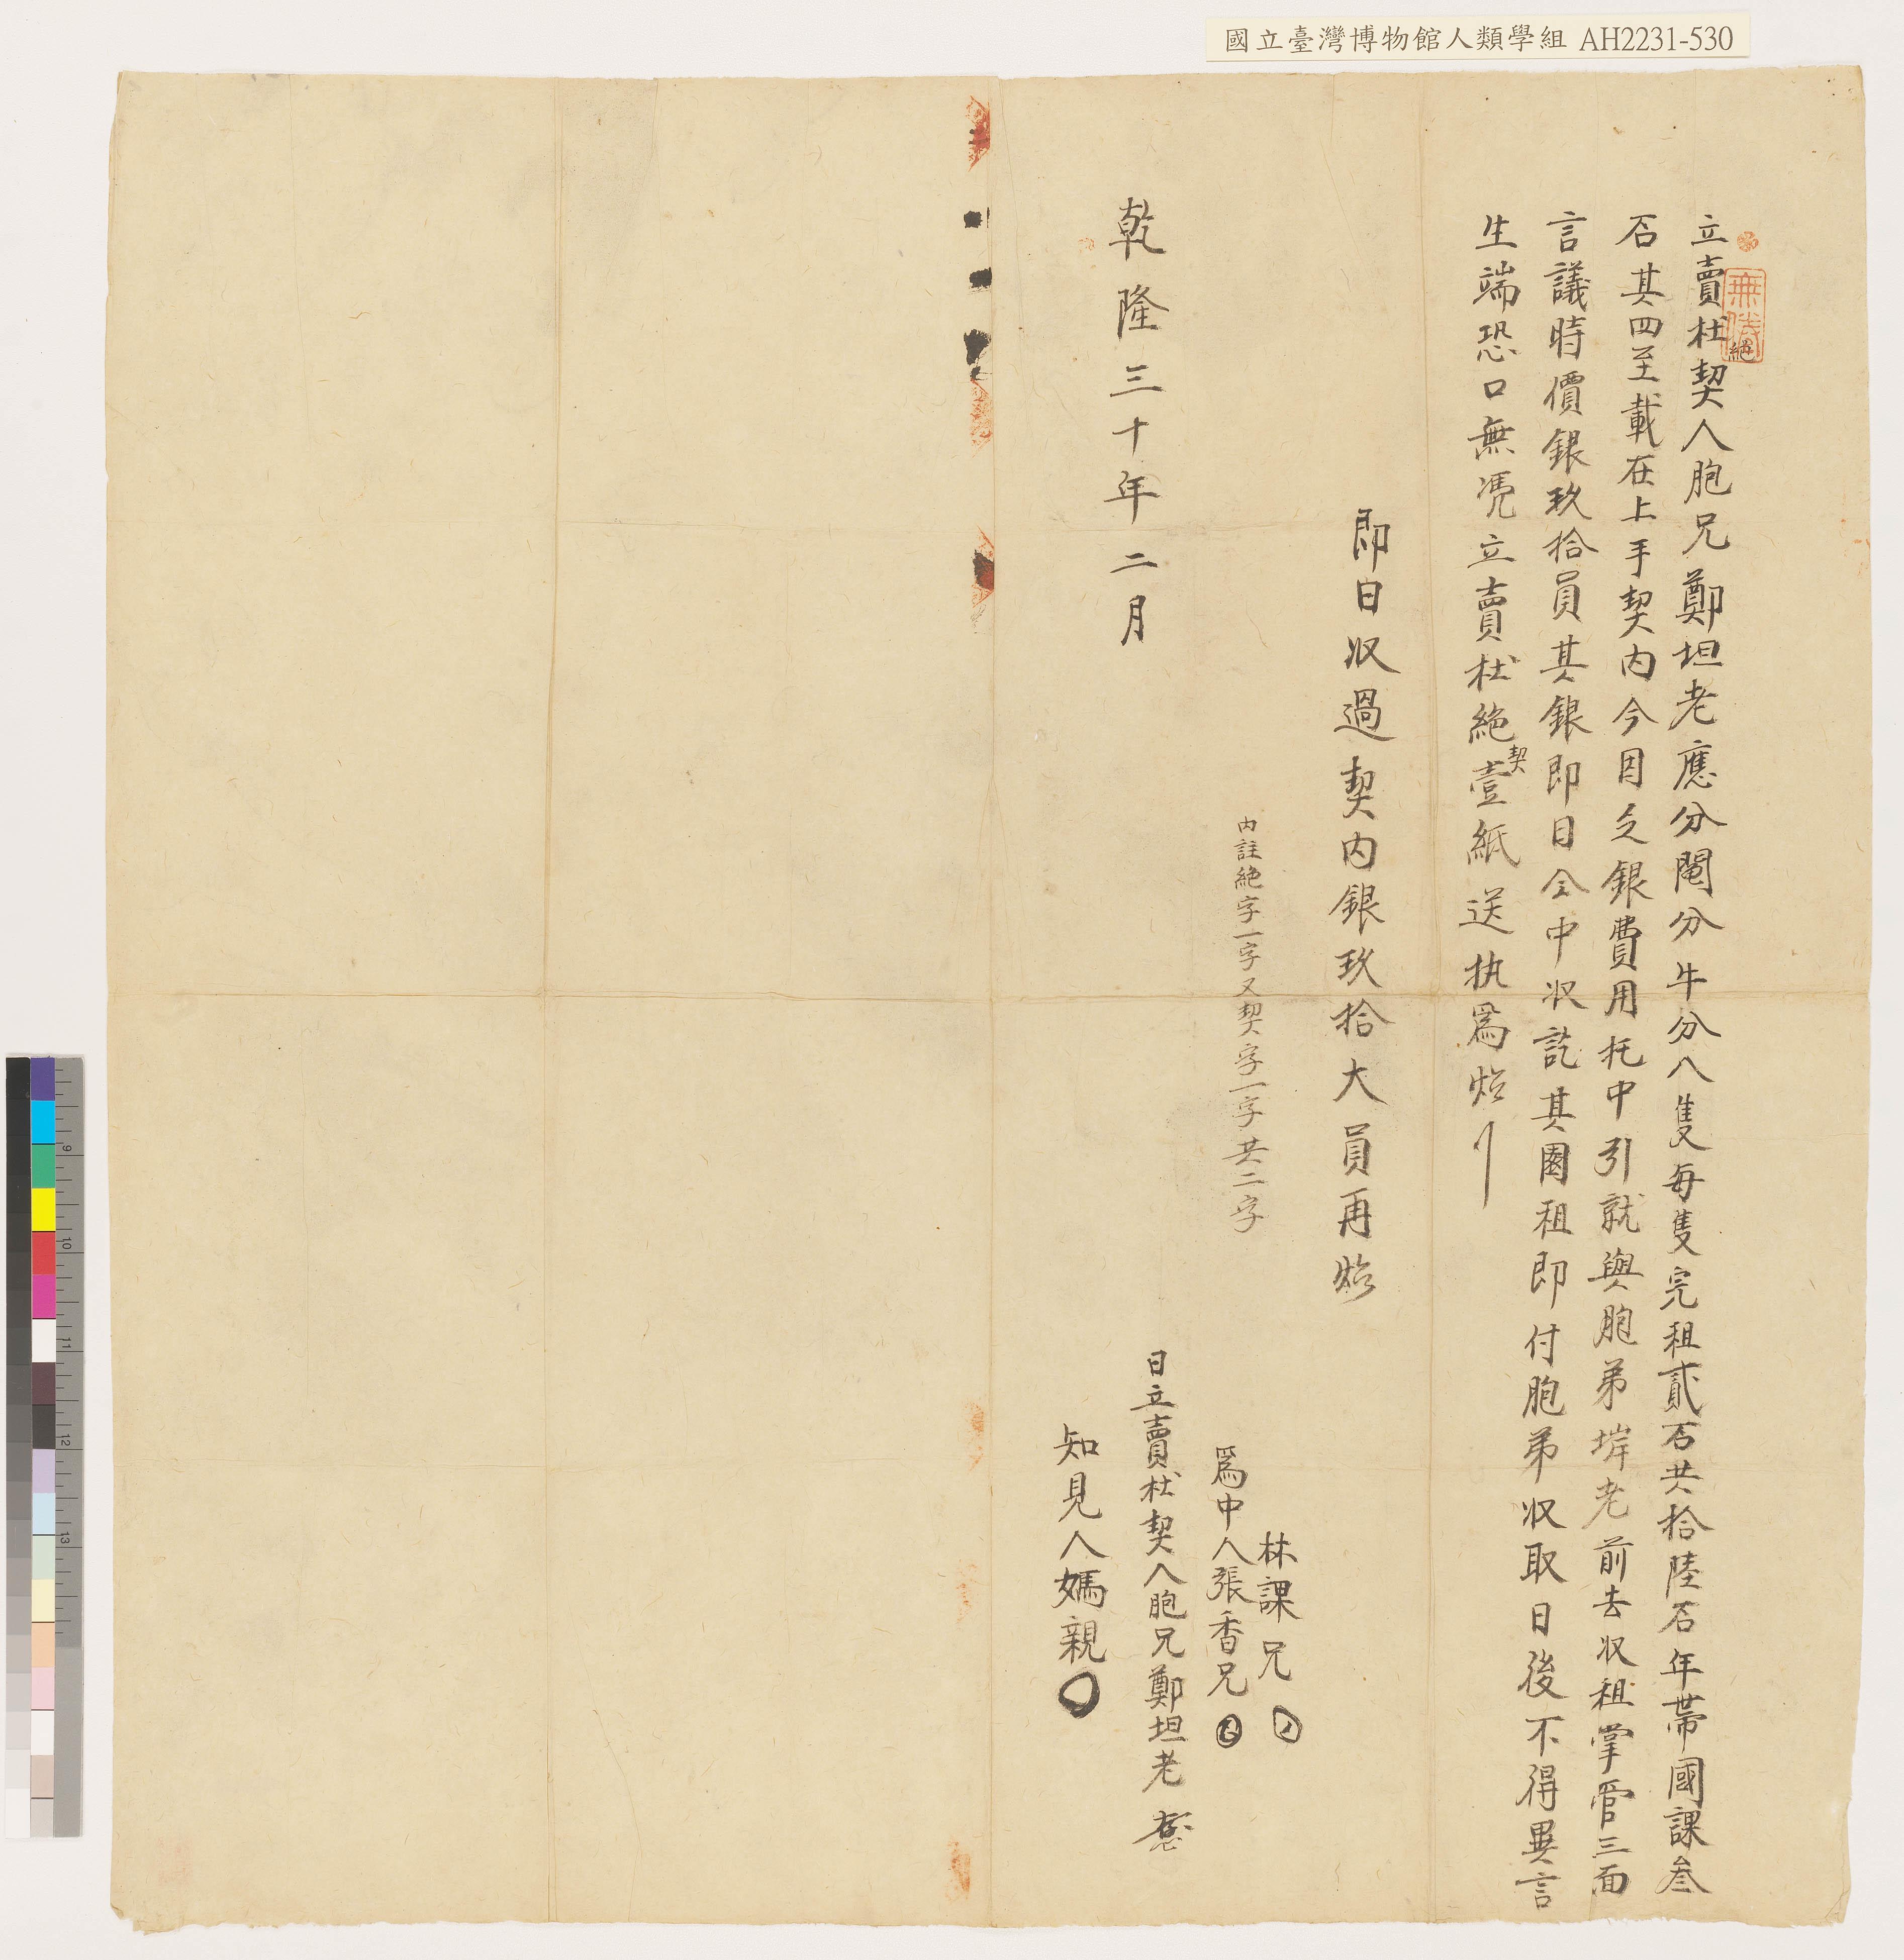 國立臺灣博物館人類學組 AH2231-530
立賣杜絕契人胞兄鄭坦老應分鬮分牛分八隻每隻完租貳石共拾陸石年帶國課叁
石其四至載在上手契內今因乏銀費用托中引就與胞弟垶老前去收租掌管三面
言議時價銀玖拾員其銀即日仝中收訖其園租即付胞弟收取日後不得異言
生端恐口無憑立賣杜絕契壹紙送执爲炤
即日收過契內銀玖拾大員再炤
內註絕字一字又契字一字共二字
林課兄
爲中人張香兄
乾隆三十年二月 日立賣杜契人胞兄鄭坦老
知見人媽親
9
10
11
12
13